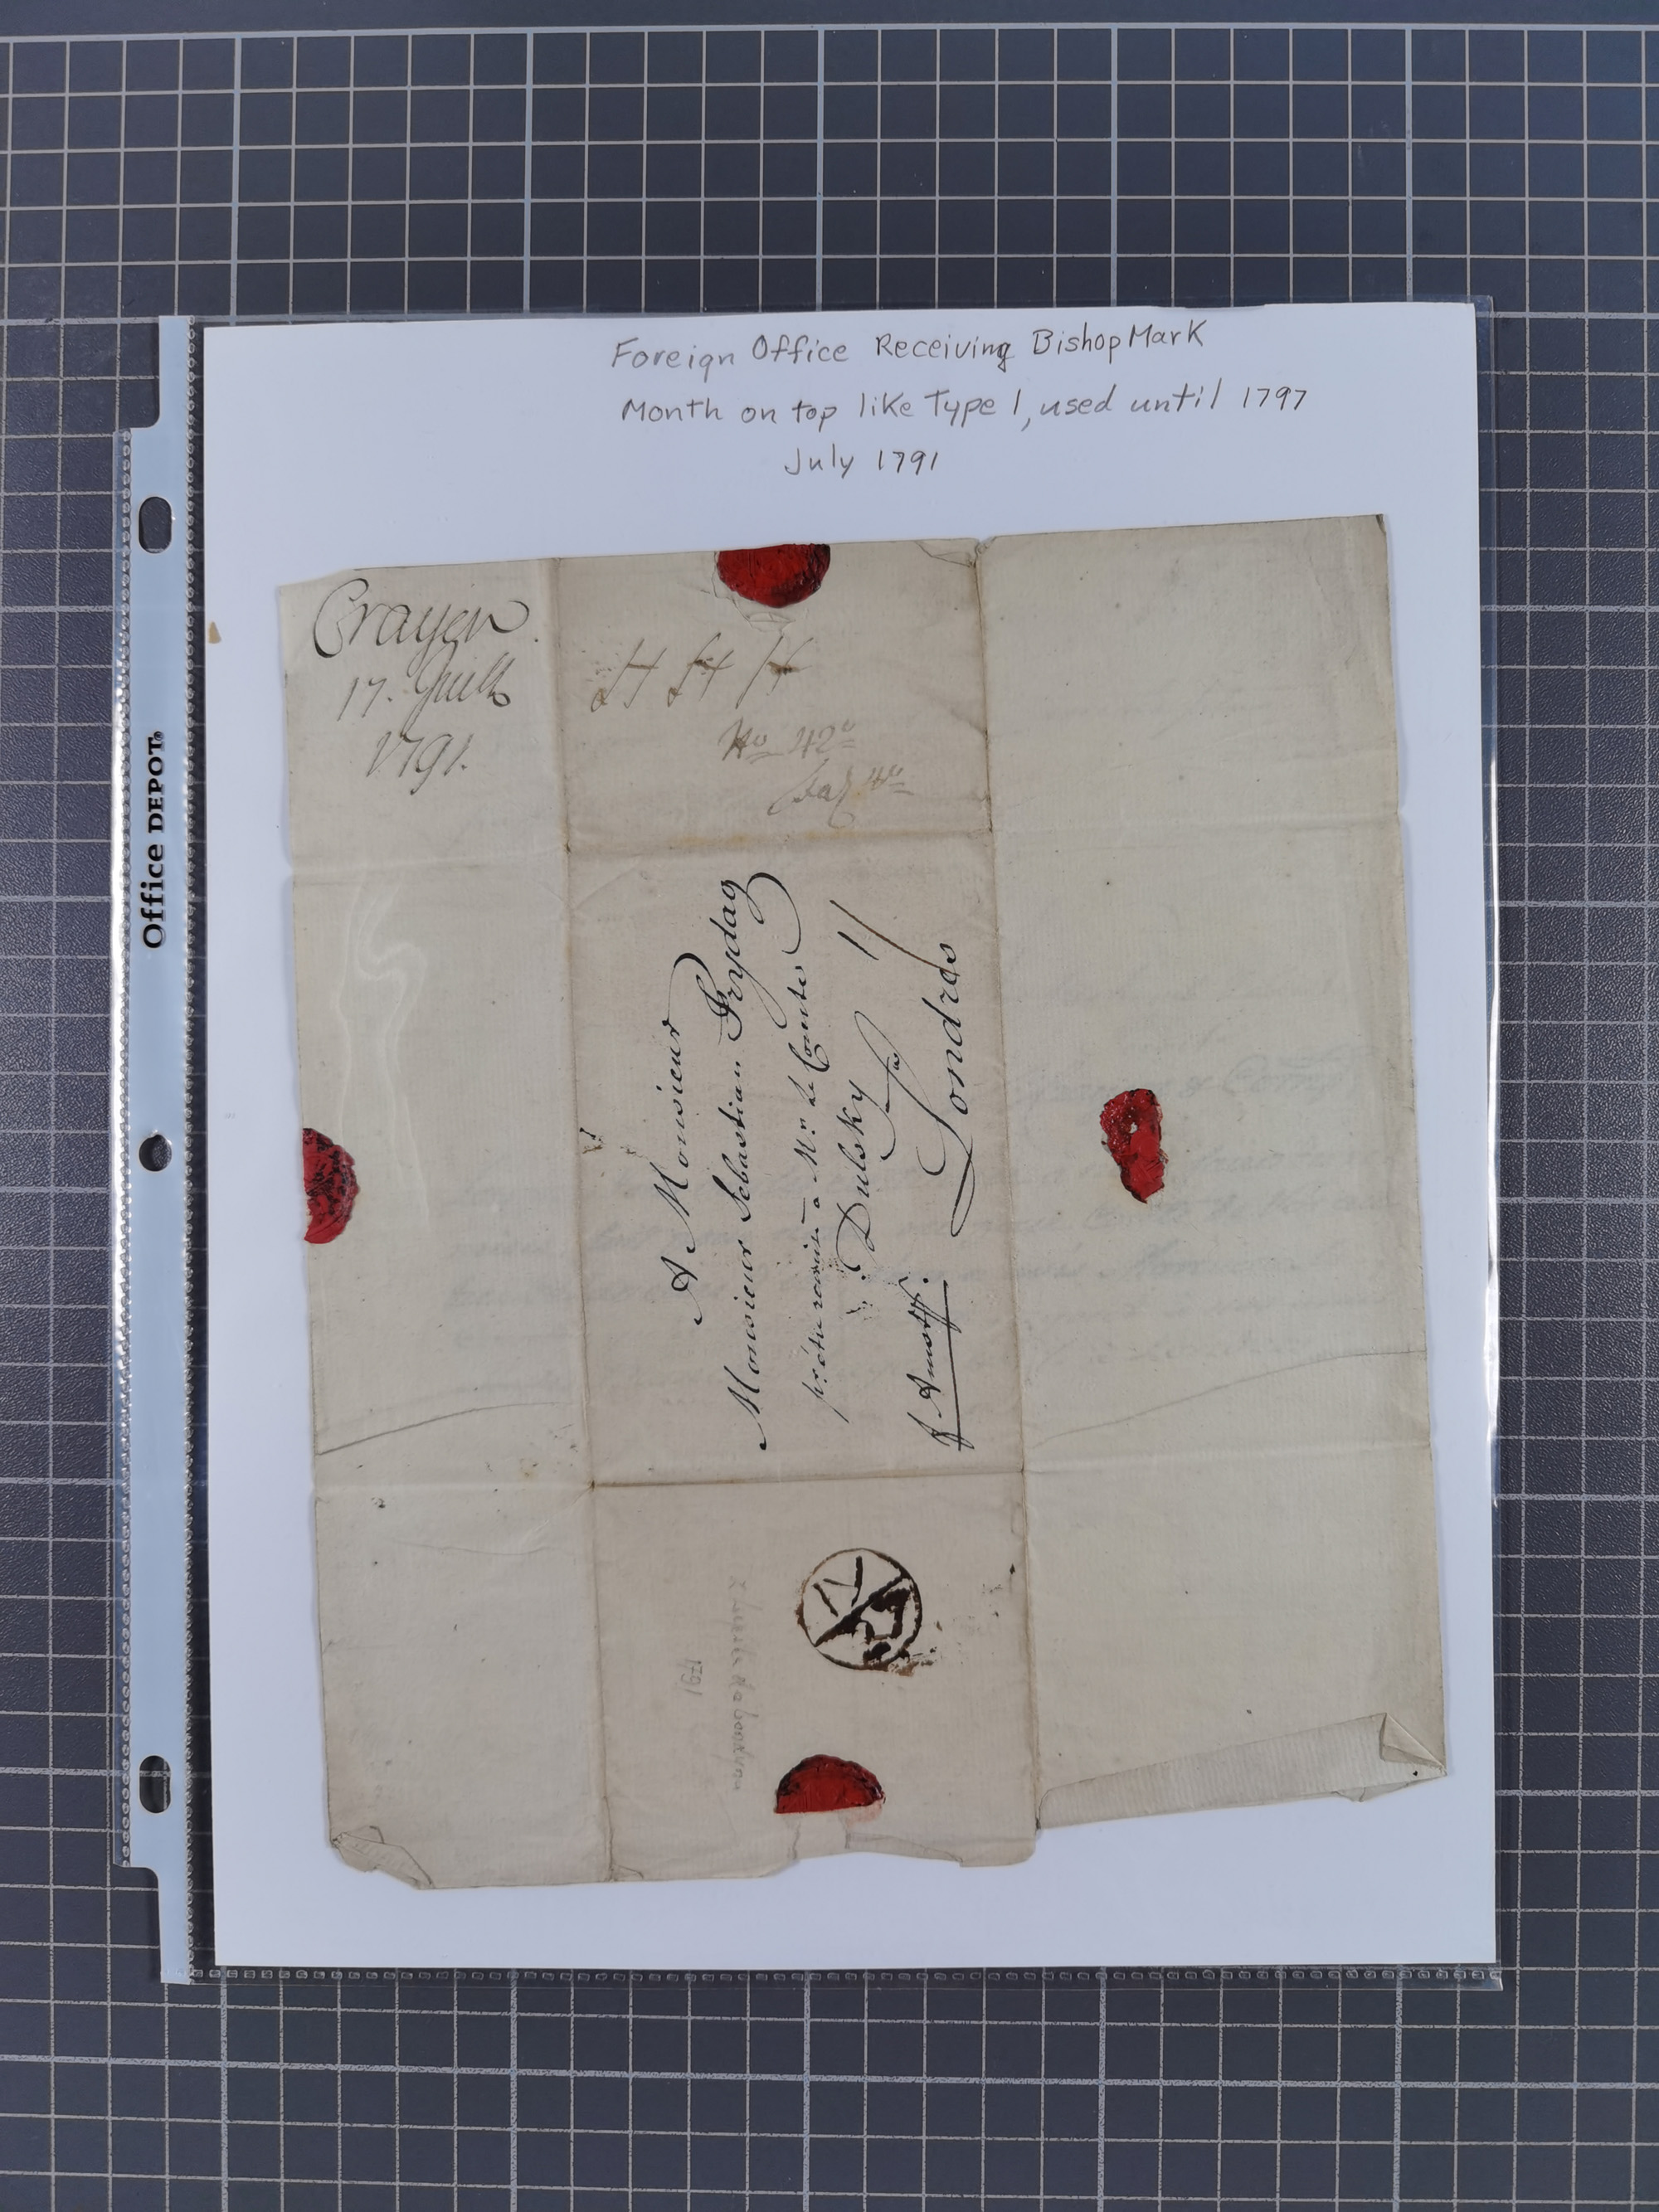 Foreign Office Receiving Bishop Mark
Month on top like Type 1, used until 1797
July 1791
Office DEPOT.
Crayen.
17.
1791.
H H H
No 42
A Monsieur
Monsieur Sebastian Frydag
a Mr. le Comte
Dulsky
Londres
1791